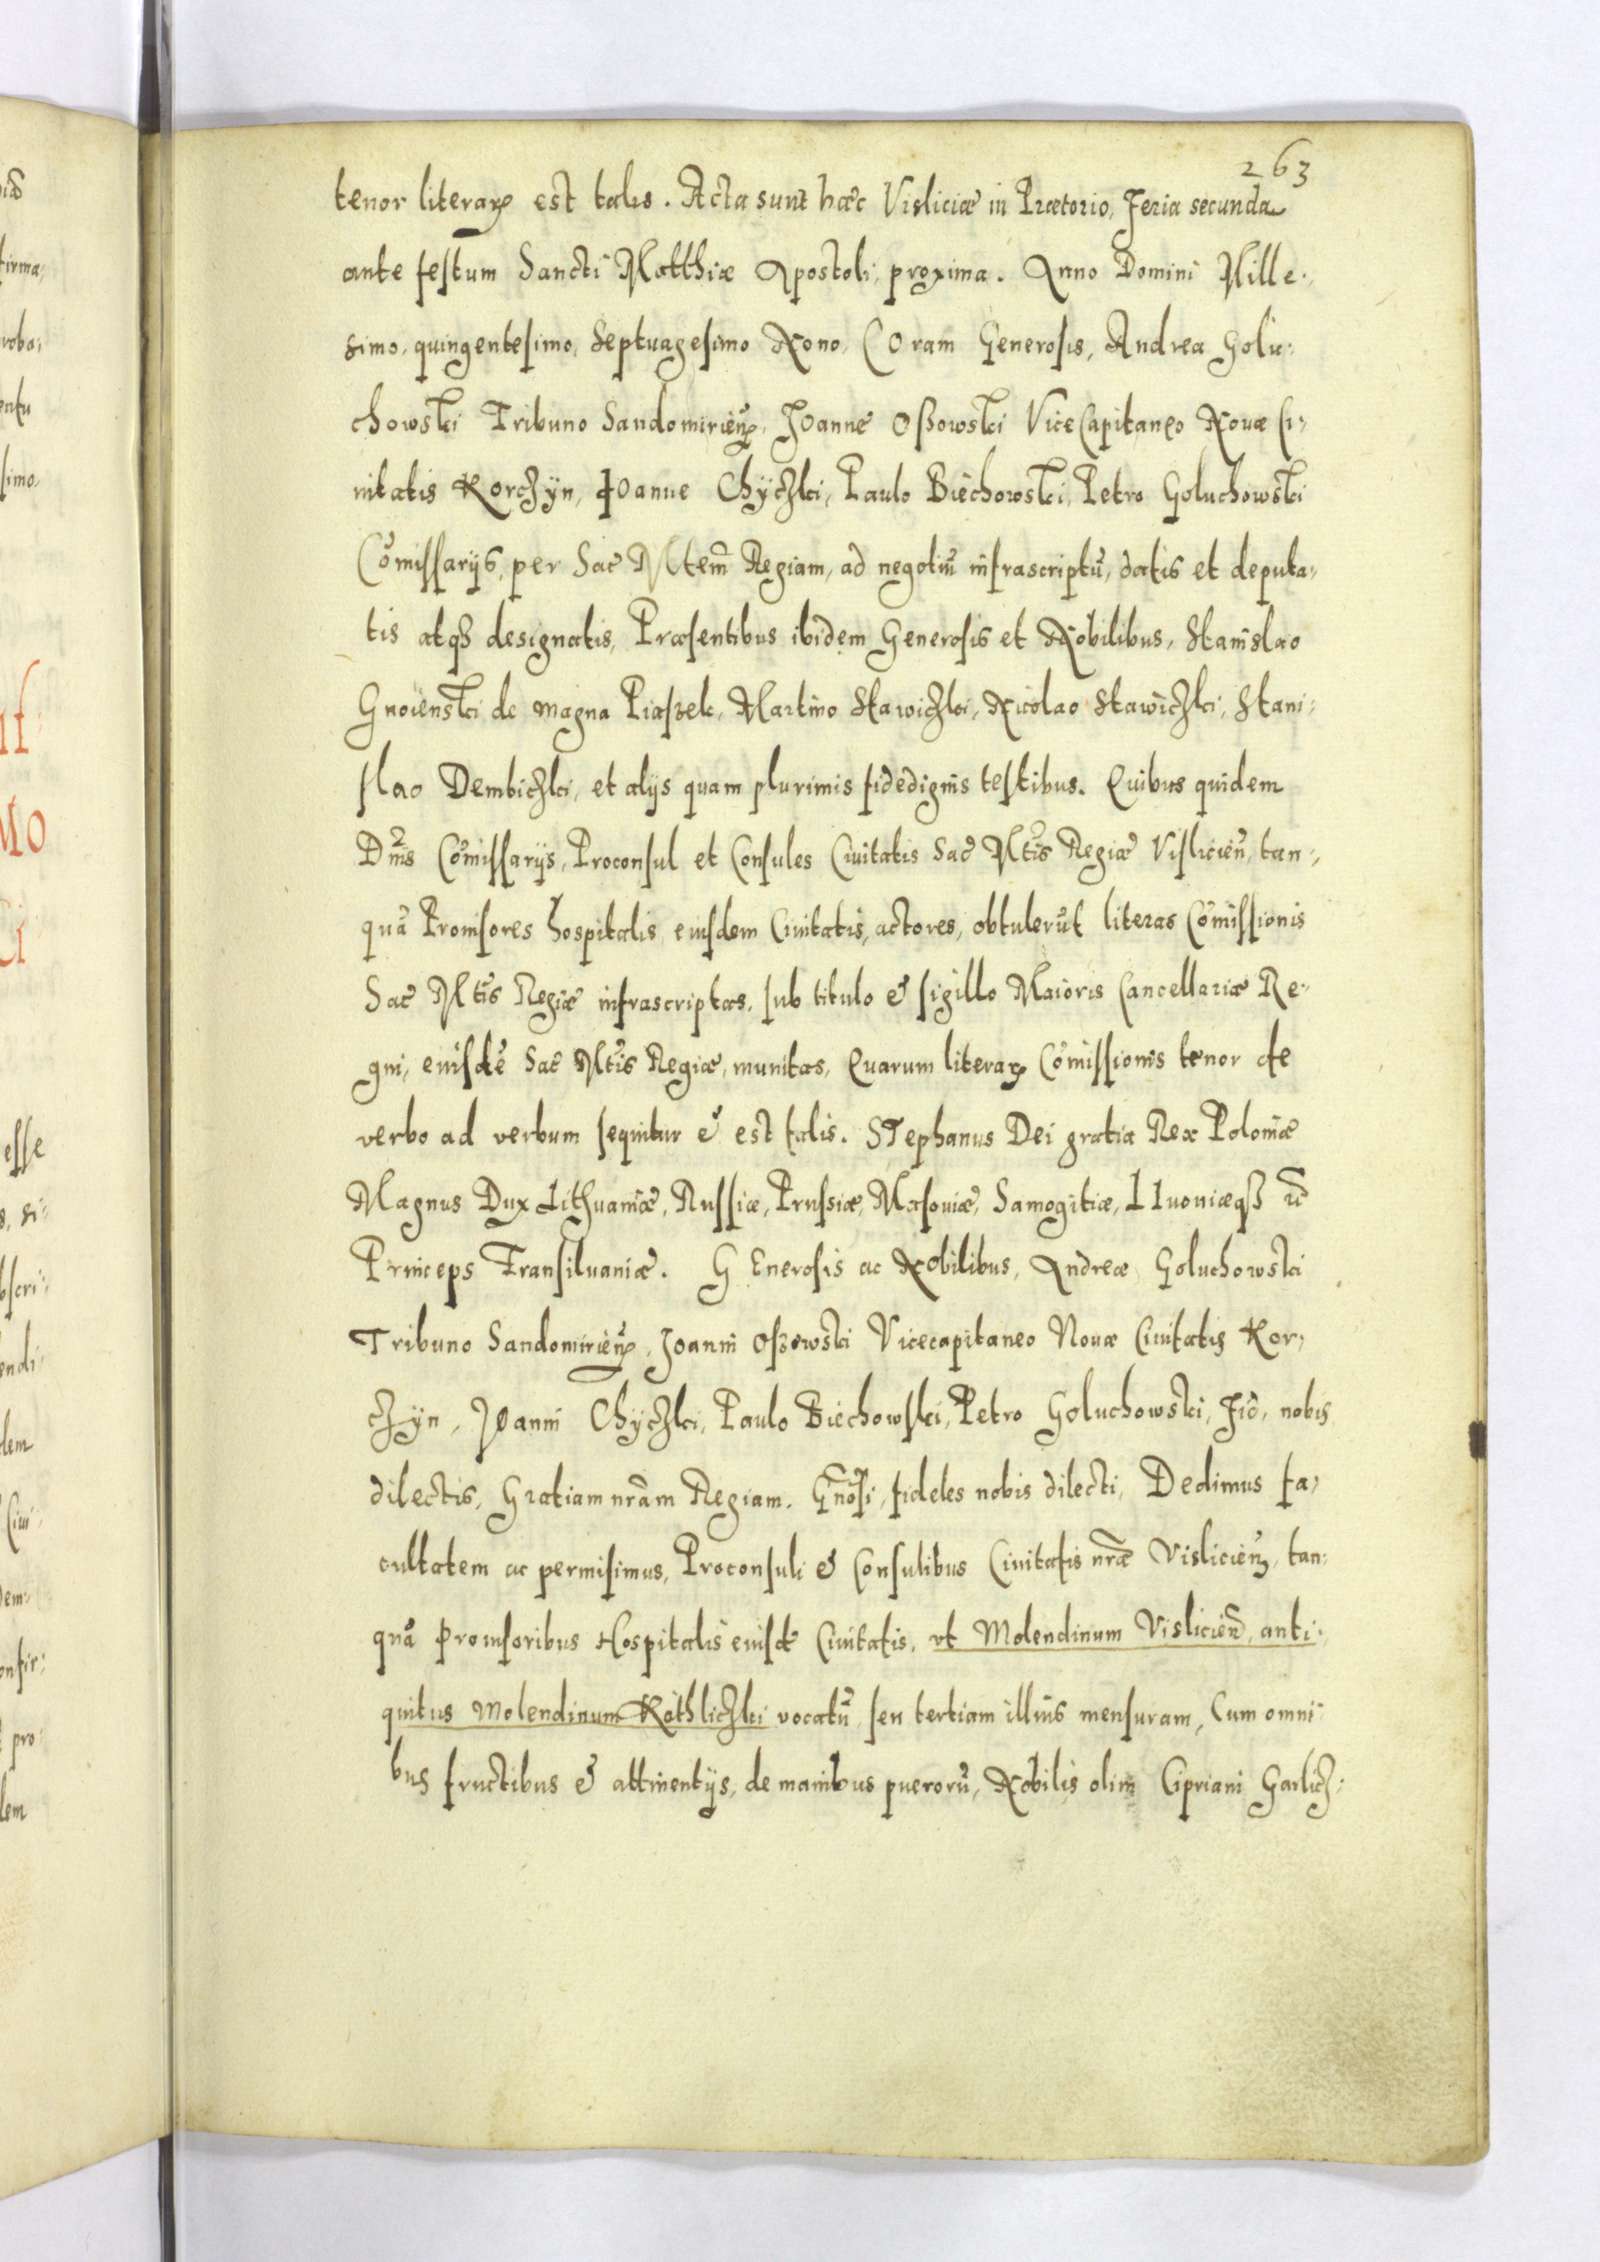 263
tenor literarꝝ est talis. Acta sunt hæc Visliciæ in Prætorio, Feria secunda
ante festum Sancti Matthiæ Apostoli, proxima. Anno Domini Mille:
simo, quingentesimo, Septuagesimo Nono, COram Generosis, Andrea Golu:
chowski Tribuno Sandomirieñ, JOanne Oßowski ViceCapitaneo Nouæ Ci:
uitatis Korczÿn, JOanne Chÿczki, Paulo Biechowski, Petro Goluchowski
Com̃issarijs, per Sac̃ Mtem̃ Regiam, ad negotiũ infrascriptũ, datis et deputa:
tis atqȝ designatis, Præsentibus ibidem Generosis et Nobilibus, Stanislao
Gnoienski de magna Piaßek, Martino Skawiczki, Nicolao Skawiczki, Stani:
slao Dembiczki, et alijs quam plurimis fidedignis testibus. Quibus quidem
Dñis Com̃issarijs, Proconsul et Consules Ciuitatis Sac̃ Mtĩs Regiæ Vislicieñ, tan:
quã Prouisores hospitalis eiusdem Ciuitatis, actores, obtulerũt literas Com̃issionis
Sac̃ Mtĩs Regiæ infrascriptas, sub titulo & sigillo Maioris Cancellariæ Re:
gni, eiusdẽ Sac̃ Mtĩs Regiæ, munitas, Quarum literarꝝ Com̃issionis tenor de
verbo ad verbum sequitur & est talis. STephanus Dei gratia Rex Poloniæ
Magnus Dux Lithuaniæ, Russiæ, Prussiæ, Masouiæ, Samogitiæ, LIuoniæqȝ &c̃
Princeps Transiluaniæ. GEnerosis ac Nobilibus, Andreæ Goluchowski
Tribuno Sandomirieñ, Joanni Oßowski Vicecapitaneo Nouæ Ciuitatis Kor:
czÿn, JOanni Chÿczki, Paulo Biechowski, Petro Goluchowski, Fid̃, nobis
dilectis, Gratiam nr̃am Regiam. Gñosi, fideles nobis dilecti, Dedimus fa:
cultatem ac permisimus, Proconsuli & Consulibus Ciuitatis nr̃æ Vislicieñ, tan:
quã Prouisoribus Hospitalis eiusd̃ Ciuitatis, vt Molendinum Vislicieñ, anti:
quitus Molendinum Kothliczki vocatũ, seu tertiam illius mensuram, Cum omni:
bus fructibus & attinentijs, de manibus puerorũ, Nobilis olim Cipriani Garlicz: